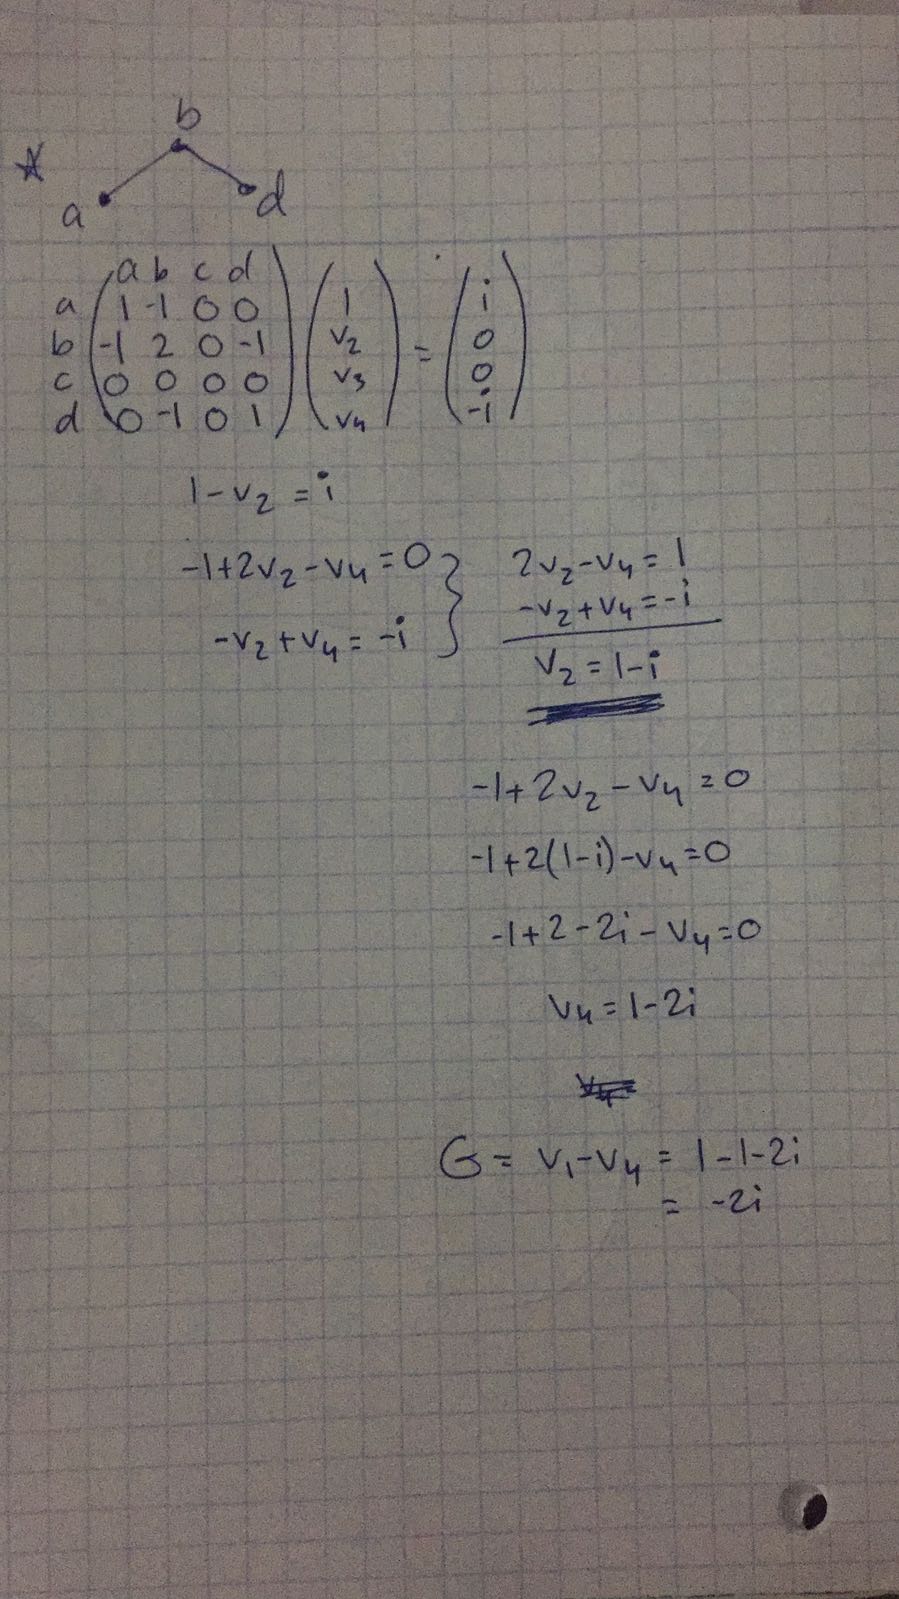 b
a d
a b c d
a 1 -1 0 0 1 i
b -1 2 0 -1 v2 = 0
c 0 0 0 0 v3 0
d 0 -1 0 1 v4 -i
1-v2 = i
-1+2v2-v4=0 } 2v2-v4=1
-v2+v4=-i -v2+v4=-i
v2=1-i
-1+2v2-v4=0
-1+2(1-i)-v4=0
-1+2-2i-v4=0
v4=1-2i
G= v1-v4 = 1-1-2i
= -2i